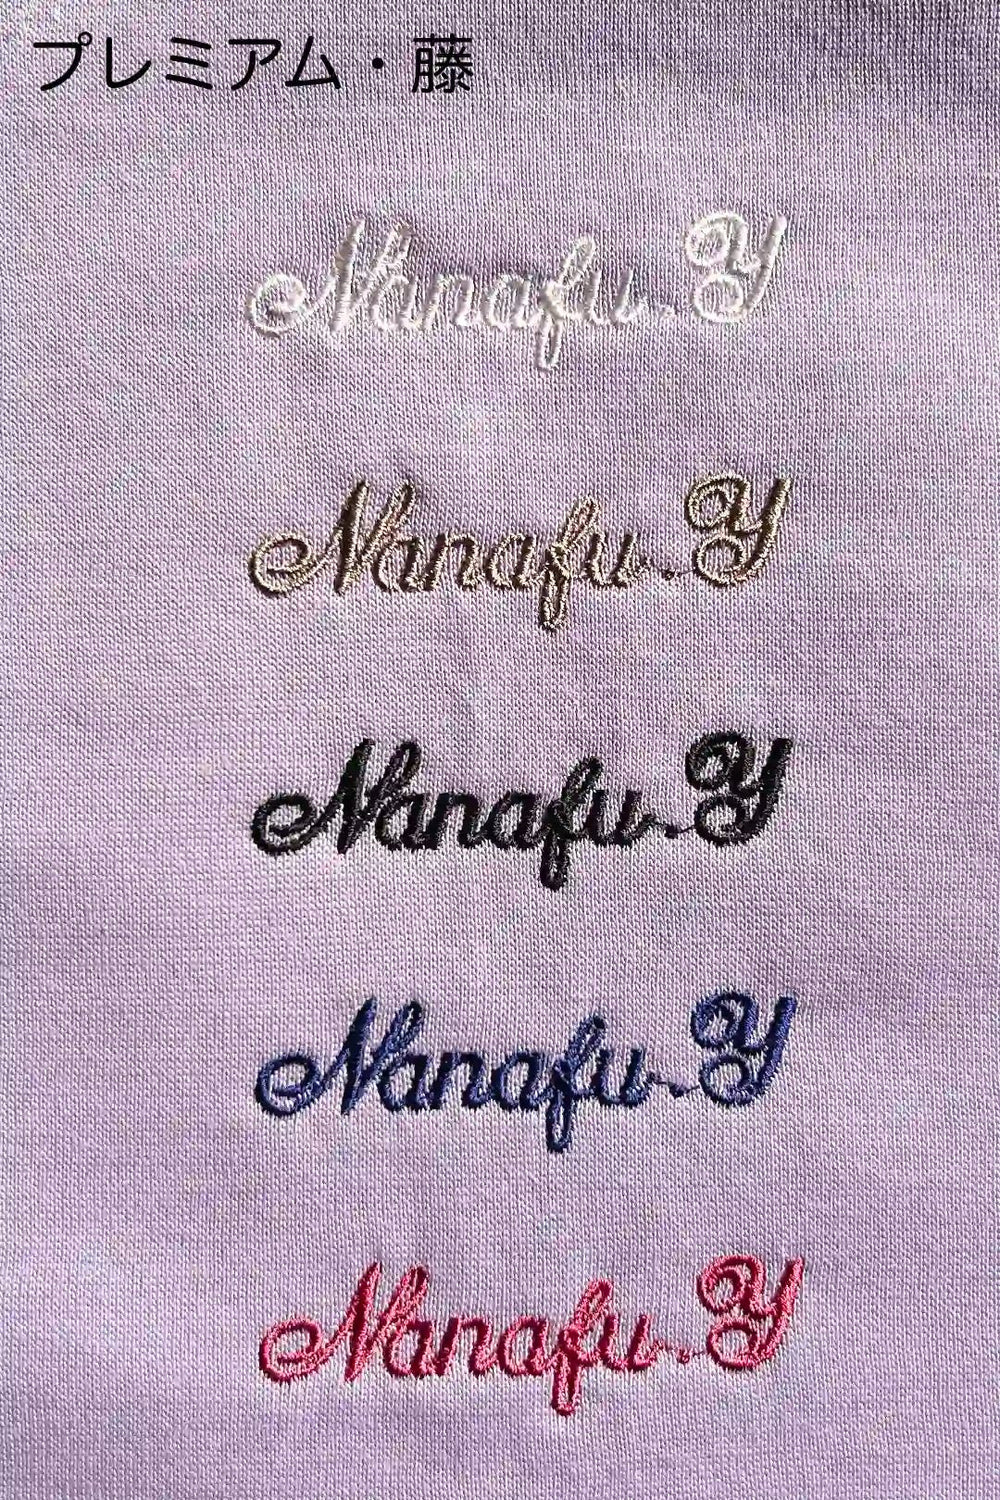 プレミアム・藤
Nanafu.Y
Nanafu.Y
Nanafu.Y
Nanafu.Y
Nanafu.Y